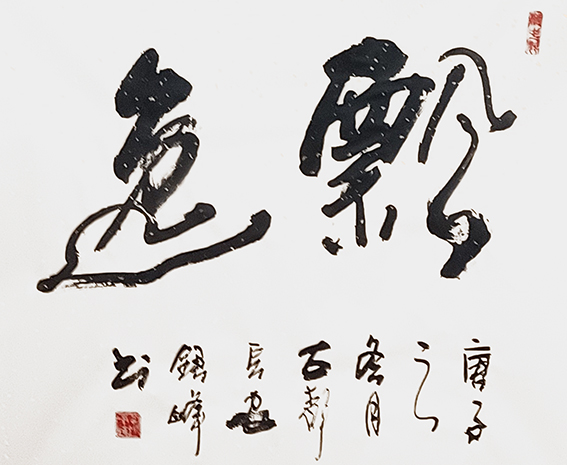 飄逸
庚子
之
冬月
古都
長安
峰
书